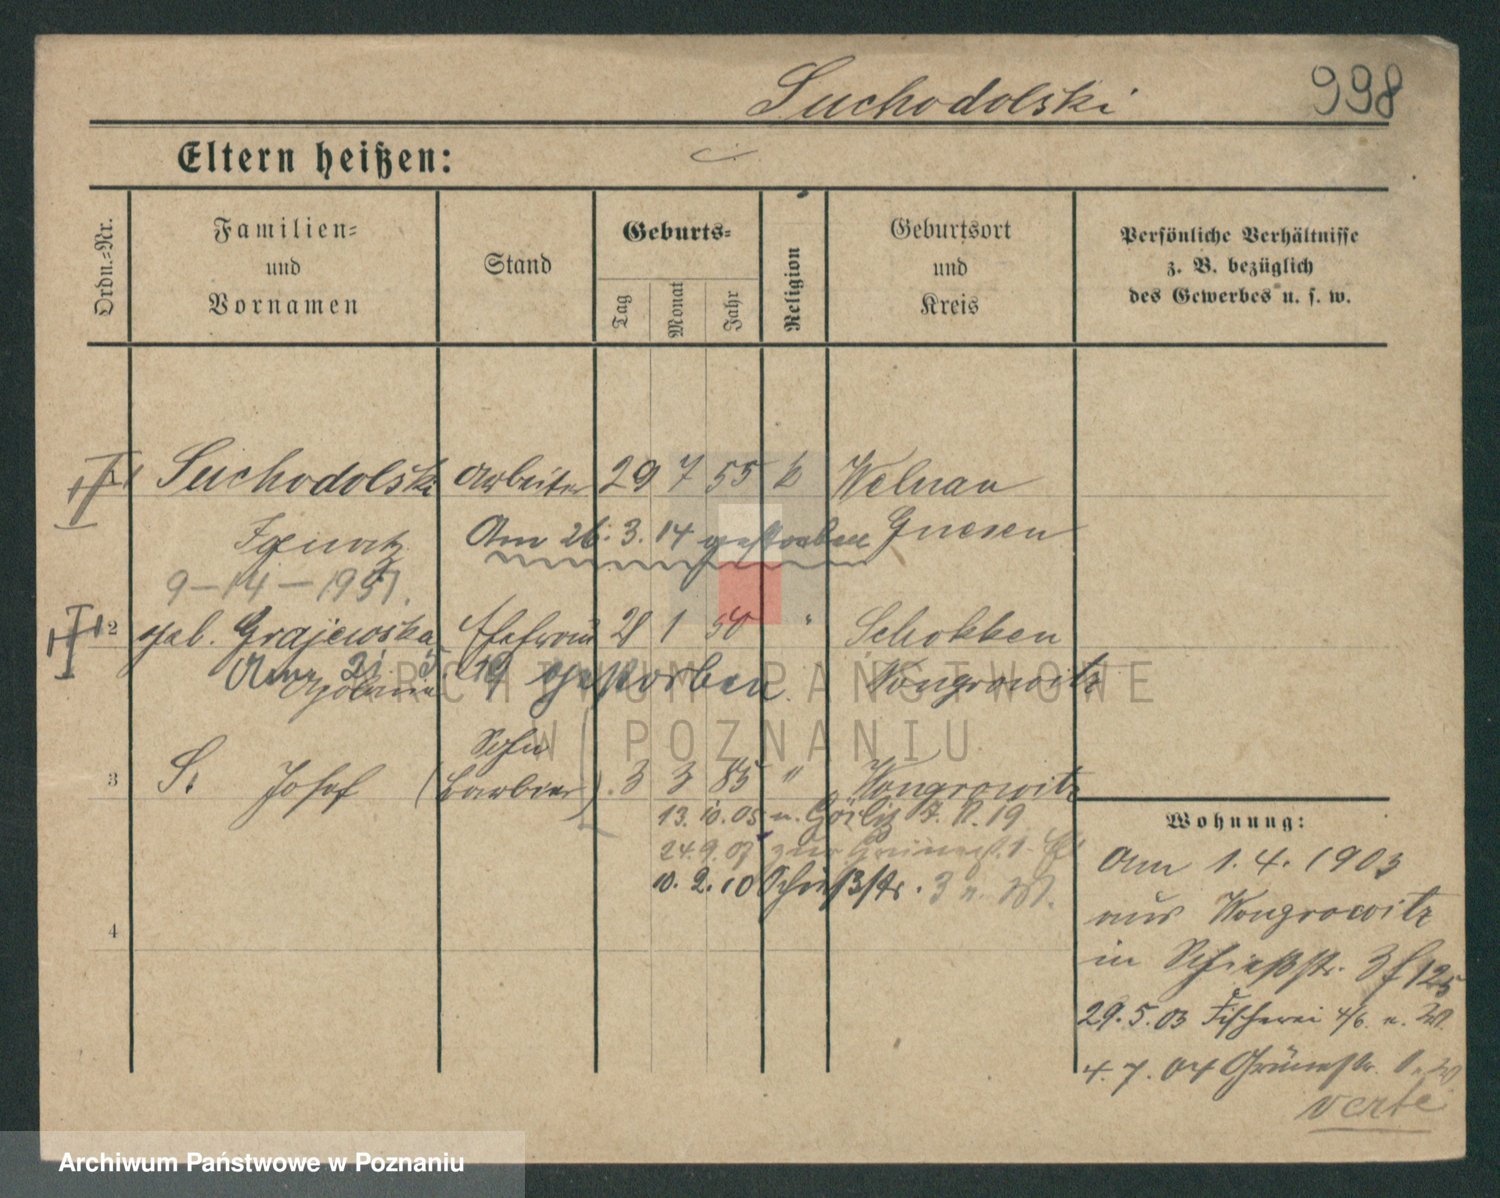 Suchodolski 998
Eltern heißen:
Ordn.-Nr.
Familien-
und
Vornamen
Stand
Geburts-
Tag
Monat
Jahr
Religion
Geburtsort
und
Kreis
Persönliche Verhältnisse
z. B. bezüglich
des Gewerbes u. s. w.
1 Suchodolski Arbeiter 29 7 55 k Welnau
Ignatz Am 26. 3. 14 gestorben Gnesen
9-14-1951.
2 geb. Grajewska Ehefrau 28 1 50 " Schokken
Am 21 5 19 gestorben Wongrowitz
Apolonia
Sohn
3 S. Josef (Barbier) 3 3 85 " Wongrowitz
13. 10. 05 n. Görlitz 7. 11. 19
24. 9. 07
10. 2. 10 Schießstr. 3 n. W.
4
Wohnung:
Am 1. 4. 1903
aus Wongrowitz
in Schießstr. 3 f 125
29. 5. 03 Fischerei 4/6 n. W.
4. 7. 04 Grünestr. 1 n. W
verte
ARCHIWUM PAŃSTWOWE
W POZNANIU
Archiwum Państwowe w Poznaniu